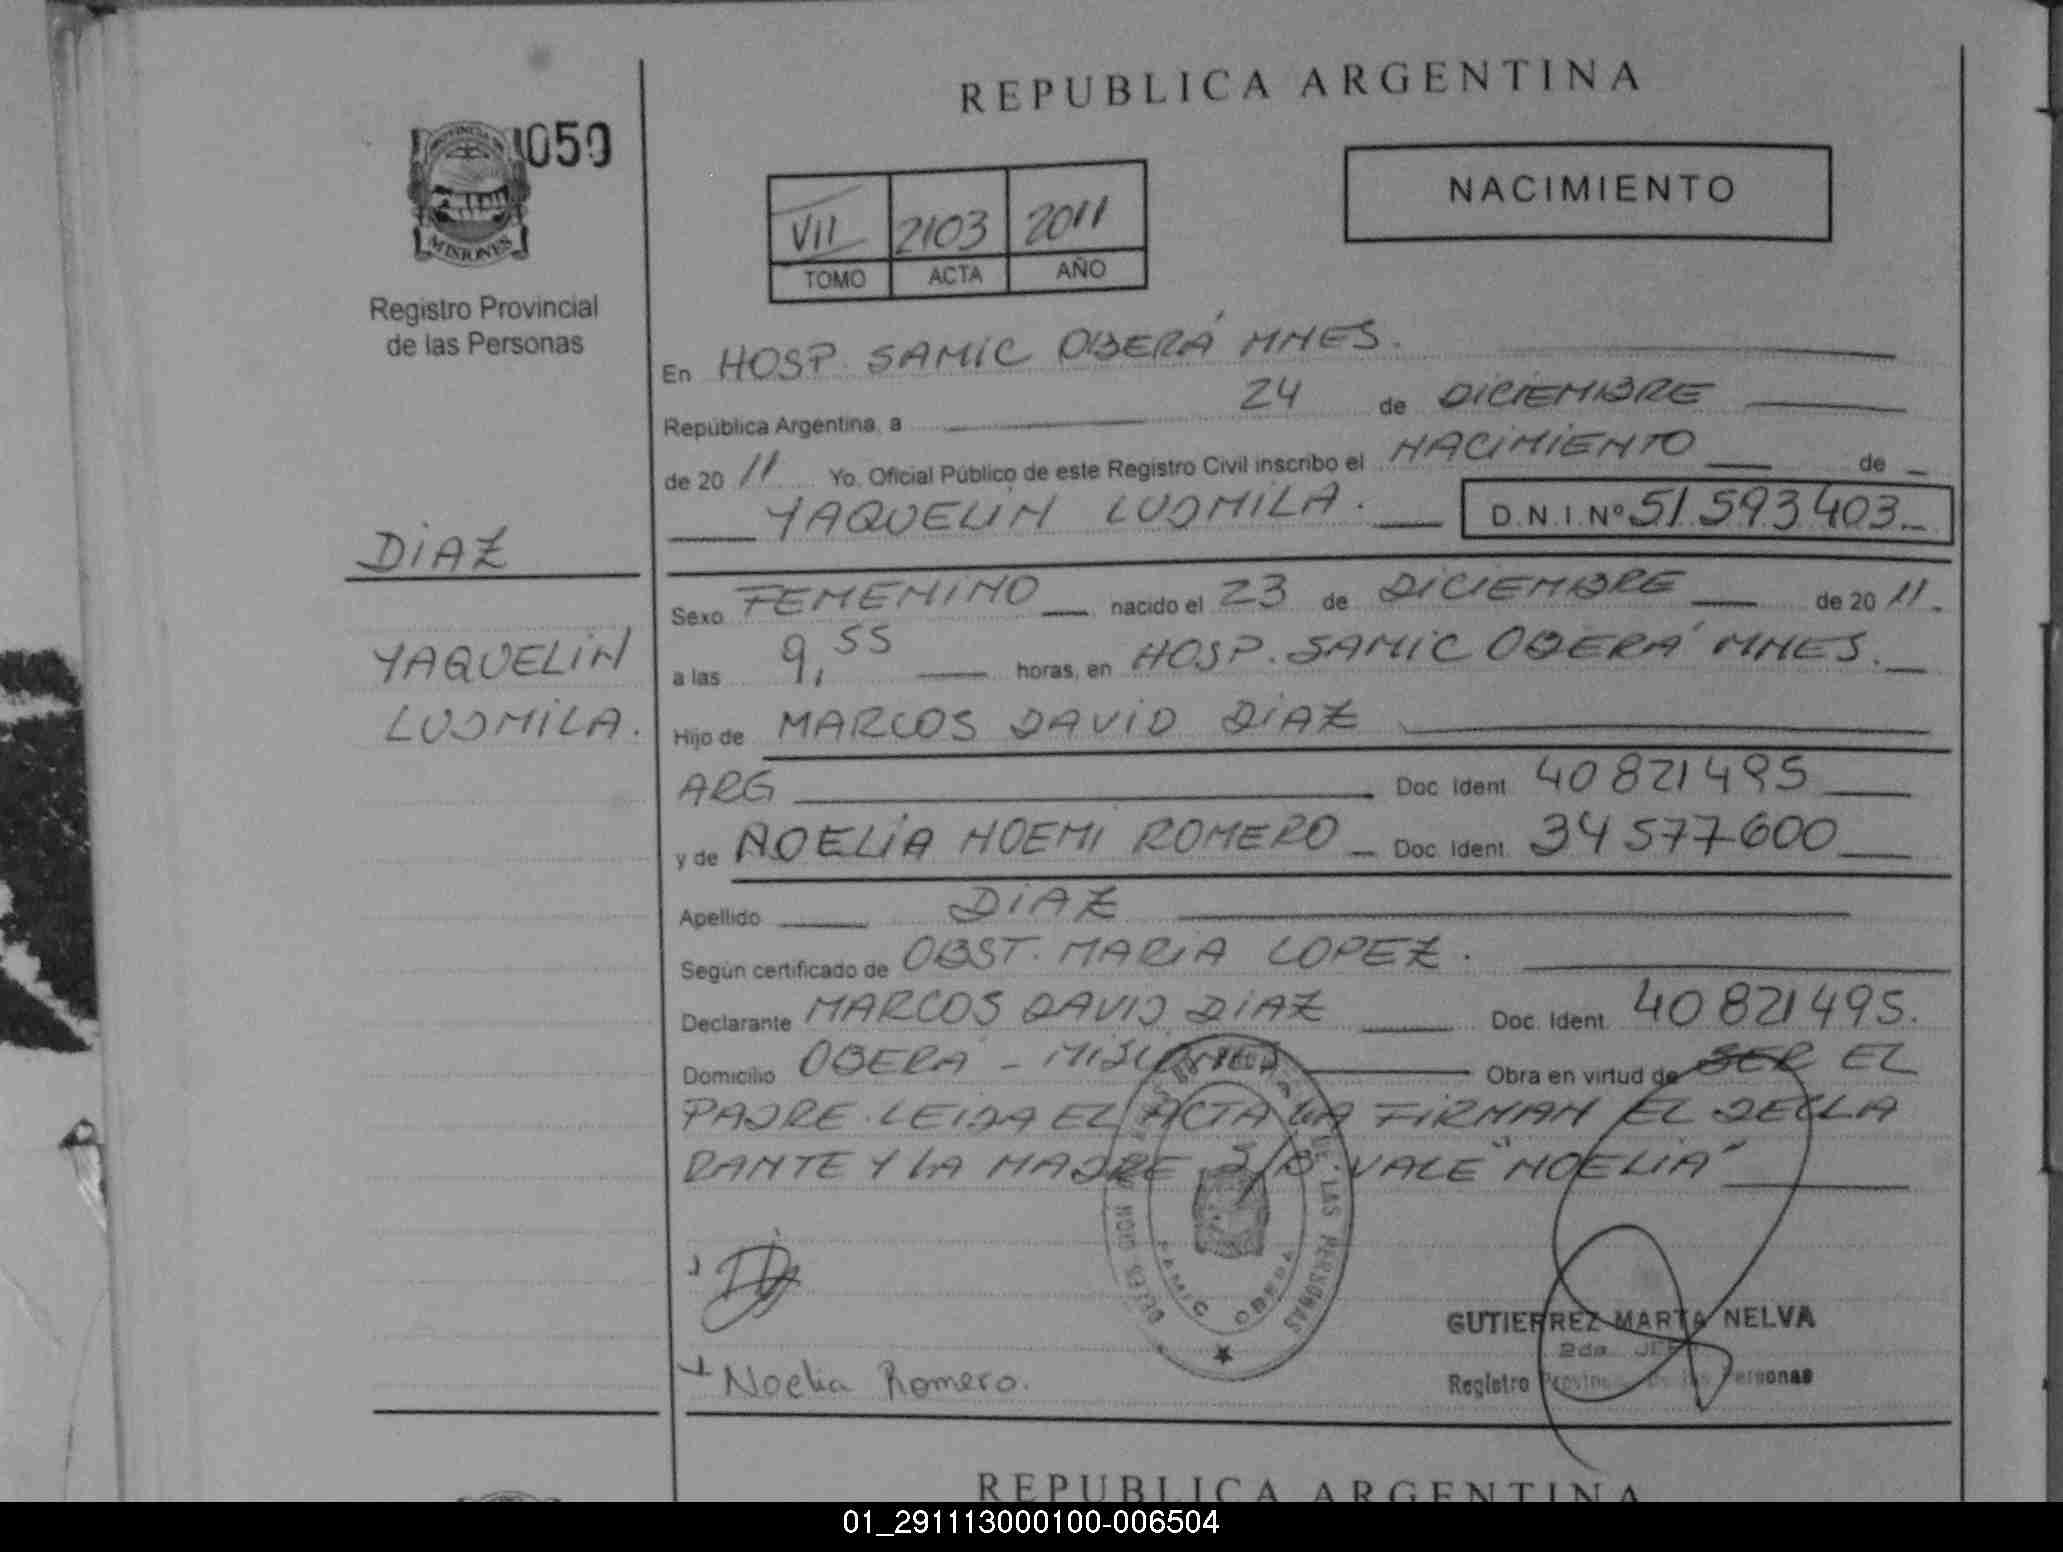 REPUBLICA ARGENTINA
050
PROVINCIA DE
MISIONES
Registro Provincial
de las Personas
NACIMIENTO
VII 2103 2011
TOMO ACTA AÑO
En HOSP. SAMIC OBERÁ MNES.
República Argentina, a 24 de DICIEMBRE
de 20 11 Yo, Oficial Público de este Registro Civil inscribo el NACIMIENTO de
YAQUELIN LUDMILA. D.N.I.Nº 51.593.403.
DIAZ
YAQUELIN
LUDMILA.
Sexo FEMENINO nacido el 23 de DICIEMBRE de 20 11.
a las 9,55 horas, en HOSP. SAMIC OBERÁ MNES.
Hijo de MARCOS DAVID DIAZ
ARG Doc. Ident. 40821495
y de NOELIA NOEMI ROMERO Doc. Ident. 34577600
Apellido DIAZ
Según certificado de OBST. MARIA LOPEZ.
Declarante MARCOS DAVID DIAZ Doc. Ident. 40821495.
Domicilio OBERÁ - MISIONES Obra en virtud de SER EL
PADRE. LEIDA EL ACTA LA FIRMAN EL DECLA
RANTE Y LA MADRE S/B VALE "NOELIA"
DE LAS PERSONAS
SAMIC OBERA
Noelia Romero.
GUTIERREZ MARTA NELVA
2da. JEFE
Registro Provincial de las Personas
REPUBLICA ARGENTINA
01_291113000100-006504